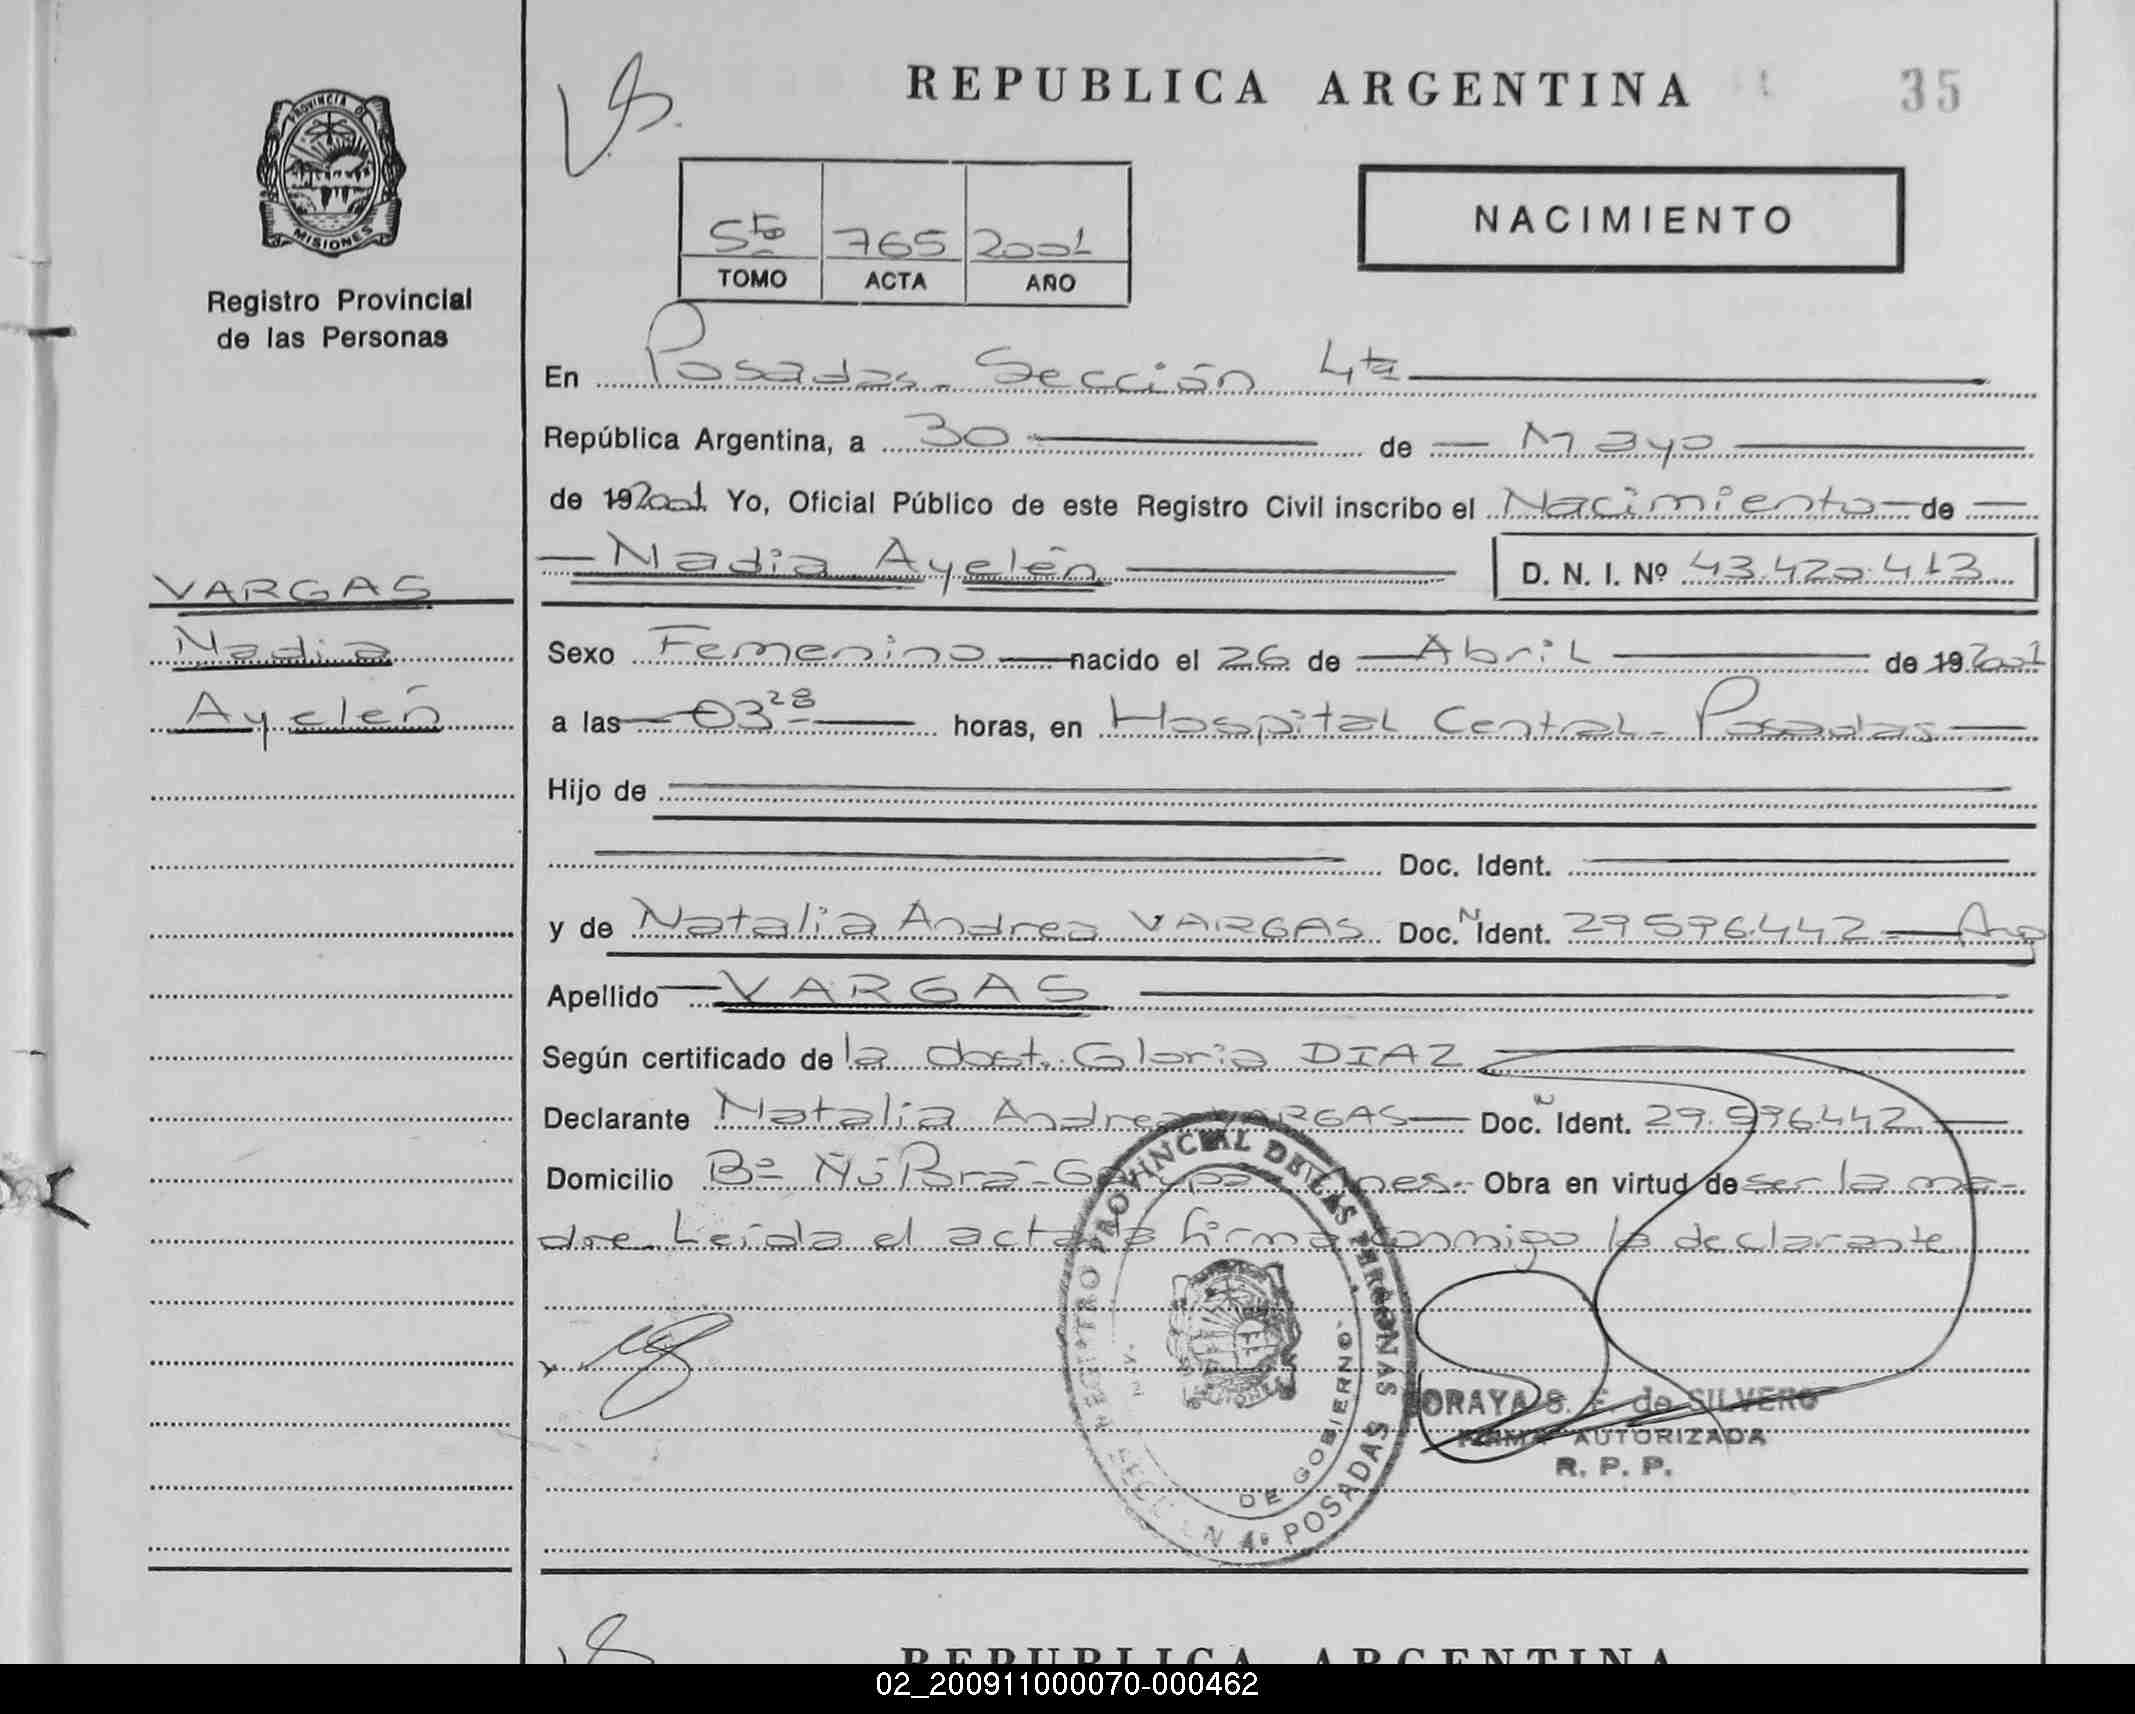 REPUBLICA ARGENTINA
35
PROVINCIA DE
MISIONES
Registro Provincial
de las Personas
5to 765 2001
TOMO ACTA AÑO
NACIMIENTO
En Posadas - Sección 4ta
República Argentina, a 30 de Mayo
de 192001 Yo, Oficial Público de este Registro Civil inscribo el Nacimiento de
Nadia Ayelén D. N. I. Nº 43.420.413
VARGAS
Nadia
Ayelén
Sexo Femenino nacido el 26 de Abril de 19 2001
a las 03 28 horas, en Hospital Central - Posadas
Hijo de
Doc. Ident.
y de Natalia Andrea VARGAS Doc. N Ident. 29.596.442 - Arg
Apellido VARGAS
Según certificado de la obst. Gloria DIAZ
Declarante Natalia Andrea VARGAS Doc. N Ident. 29.596.442
Domicilio Bº Ñú Porá - Obra en virtud de ser la ma-
dre. Leída el acta la firma conmigo la declarante
REGISTRO PROVINCIAL DE LAS PERSONAS
DE GOBIERNO
SECCION 4ª POSADAS
SORAYA S. F. de SILVERO
FIRMA AUTORIZADA
R. P. P.
REPUBLICA ARGENTINA
02_200911000070-000462